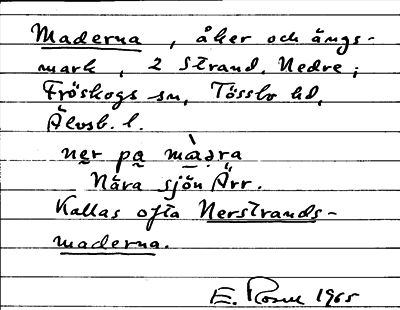 Maderna, åker och ängs-
mark, 2 Strand, Nedre;
Fröskogs sn, Tössbo hd,
Älvsb. l.
ner pa màdra
Nära sjön Ärr.
Kallas ofta Nerstrands-
maderna.
E. Rosell 1965